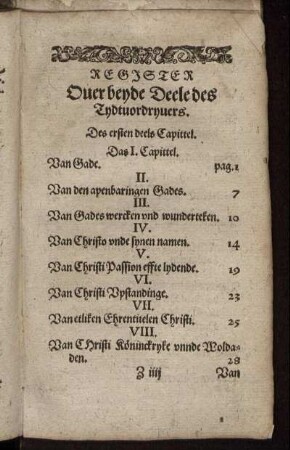 REGISTER
Ouer beyde Deele des
Tydtuordryuers.
Des ersten deels Capittel.
Das I. Capittel.
Van Gade. pag. 1
II.
Van den apenbaringen Gades. 7
III.
Van Gades wercken vnd wunderteken. 10
IV.
Van Christo vnde synen namen. 14
V.
Van Christi Passion effte lydende. 19
VI.
Van Christi Vpstandinge. 23
VII.
Van etliken Ehrentitelen Christi. 25
VIII.
Van CHristi Köninckryke vnnde Wolda-
den. 28
Z iiij Van